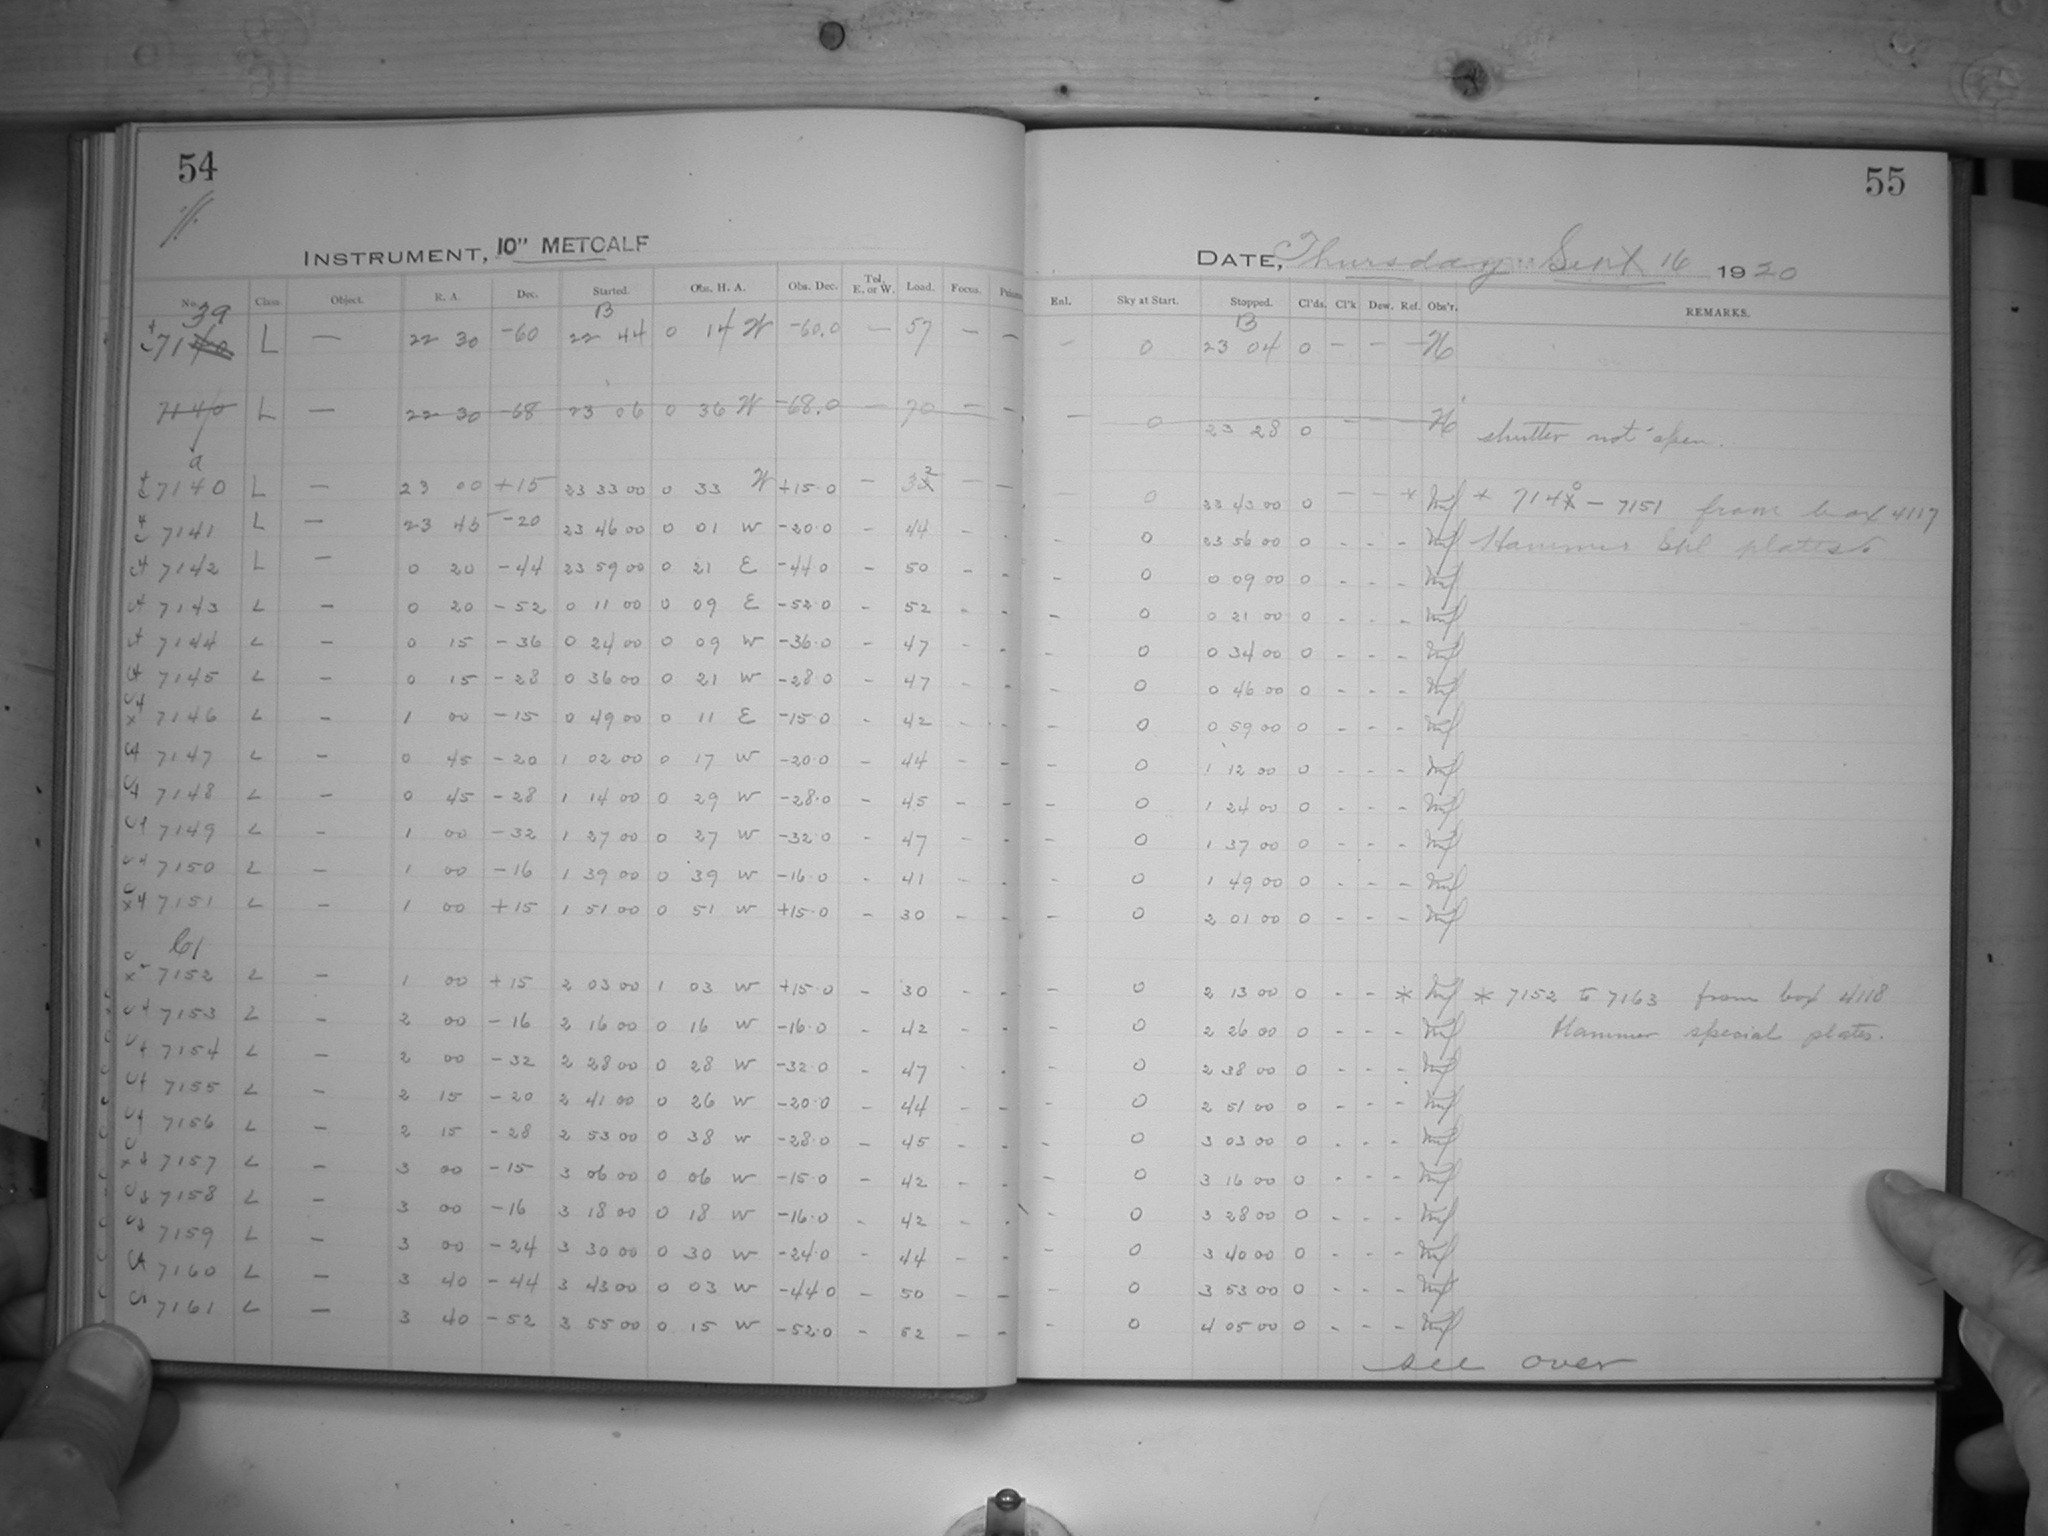 54
55
INSTRUMENT, 10" METCALF
DATE, Thursday Sept 16 1920
No. Class. Object. R. A. Dec. Started. Obs. H. A. Obs. Dec. Tel. E. or W. Load. Focus. Enl. Sky at Start. Stopped. Cl'ds. Cl'k Dew. Ref. Obs'r. REMARKS.
39 B B
7140 L — 22 30 -60 22 44 0 14 W -60.0 — 57 — — - 0 23 04 0 - - -
7140 L — 22 30 -68 23 06 0 36 W -68.0 — 70 — - — 0 23 28 0 - shutter not open.
a
7140 L — 23 00 +15 23 33 00 0 33 W +15.0 - 32 - - - 0 23 43 00 0 - - * * 7140 - 7151 from box 4117
7141 L — 23 45 -20 23 46 00 0 01 W -20.0 - 44 - - - 0 23 56 00 0 - - - Hammer Spl plates
7142 L — 0 20 -44 23 59 00 0 21 E -44 0 - 50 - - - 0 0 09 00 0 - - -
7143 L - 0 20 -52 0 11 00 0 09 E -52.0 - 52 - - - 0 0 21 00 0 - - -
7144 L - 0 15 -36 0 24 00 0 09 W -36.0 - 47 - - - 0 0 34 00 0 - - -
7145 L - 0 15 -28 0 36 00 0 21 W -28 0 - 47 - - - 0 0 46 00 0 - - -
x4 7146 L - 1 00 -15 0 49 00 0 11 E -15.0 - 42 - - - 0 0 59 00 0 - - -
7147 L - 0 45 -20 1 02 00 0 17 W -20.0 - 44 - - - 0 1 12 00 0 - - -
7148 L - 0 45 -28 1 14 00 0 29 W -28.0 - 45 - - - 0 1 24 00 0 - - -
7149 L - 1 00 -32 1 27 00 0 27 W -32.0 - 47 - - - 0 1 37 00 0 - - -
7150 L - 1 00 -16 1 39 00 0 39 W -16.0 - 41 - - - 0 1 49 00 0 - - -
x4 7151 L - 1 00 +15 1 51 00 0 51 W +15.0 - 30 - - - 0 2 01 00 0 - - -
x 7152 L - 1 00 +15 2 03 00 1 03 W +15.0 - 30 - - - 0 2 13 00 0 - - * * 7152 to 7163 from box 4118
7153 L - 2 00 -16 2 16 00 0 16 W -16.0 - 42 - - - 0 2 26 00 0 - - - Hammer special plates.
7154 L - 2 00 -32 2 28 00 0 28 W -32.0 - 47 - - - 0 2 38 00 0 - - -
7155 L - 2 15 -20 2 41 00 0 26 W -20.0 - 44 - - - 0 2 51 00 0 - - -
7156 L - 2 15 -28 2 53 00 0 38 W -28.0 - 45 - - - 0 3 03 00 0 - - -
x3 7157 L - 3 00 -15 3 06 00 0 06 W -15.0 - 42 - - - 0 3 16 00 0 - - -
7158 L - 3 00 -16 3 18 00 0 18 W -16.0 - 42 - - - 0 3 28 00 0 - - -
7159 L - 3 00 -24 3 30 00 0 30 W -24.0 - 44 - - - 0 3 40 00 0 - - -
7160 L - 3 40 -44 3 43 00 0 03 W -44.0 - 50 - - - 0 3 53 00 0 - - -
7161 L - 3 40 -52 3 55 00 0 15 W -52.0 - 52 - - - 0 4 05 00 0 - - -
see over